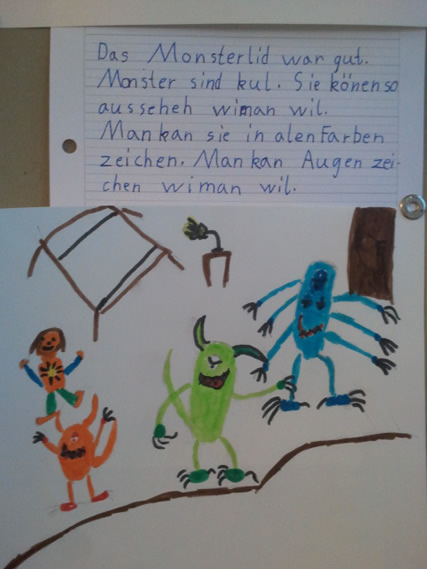 Das Monsterlid war gut.
Monster sind kul. Sie könen so
ausseheh wiman wil.
Man kan sie in alen Farben
zeichen. Man kan Augen zei-
chen wiman wil.